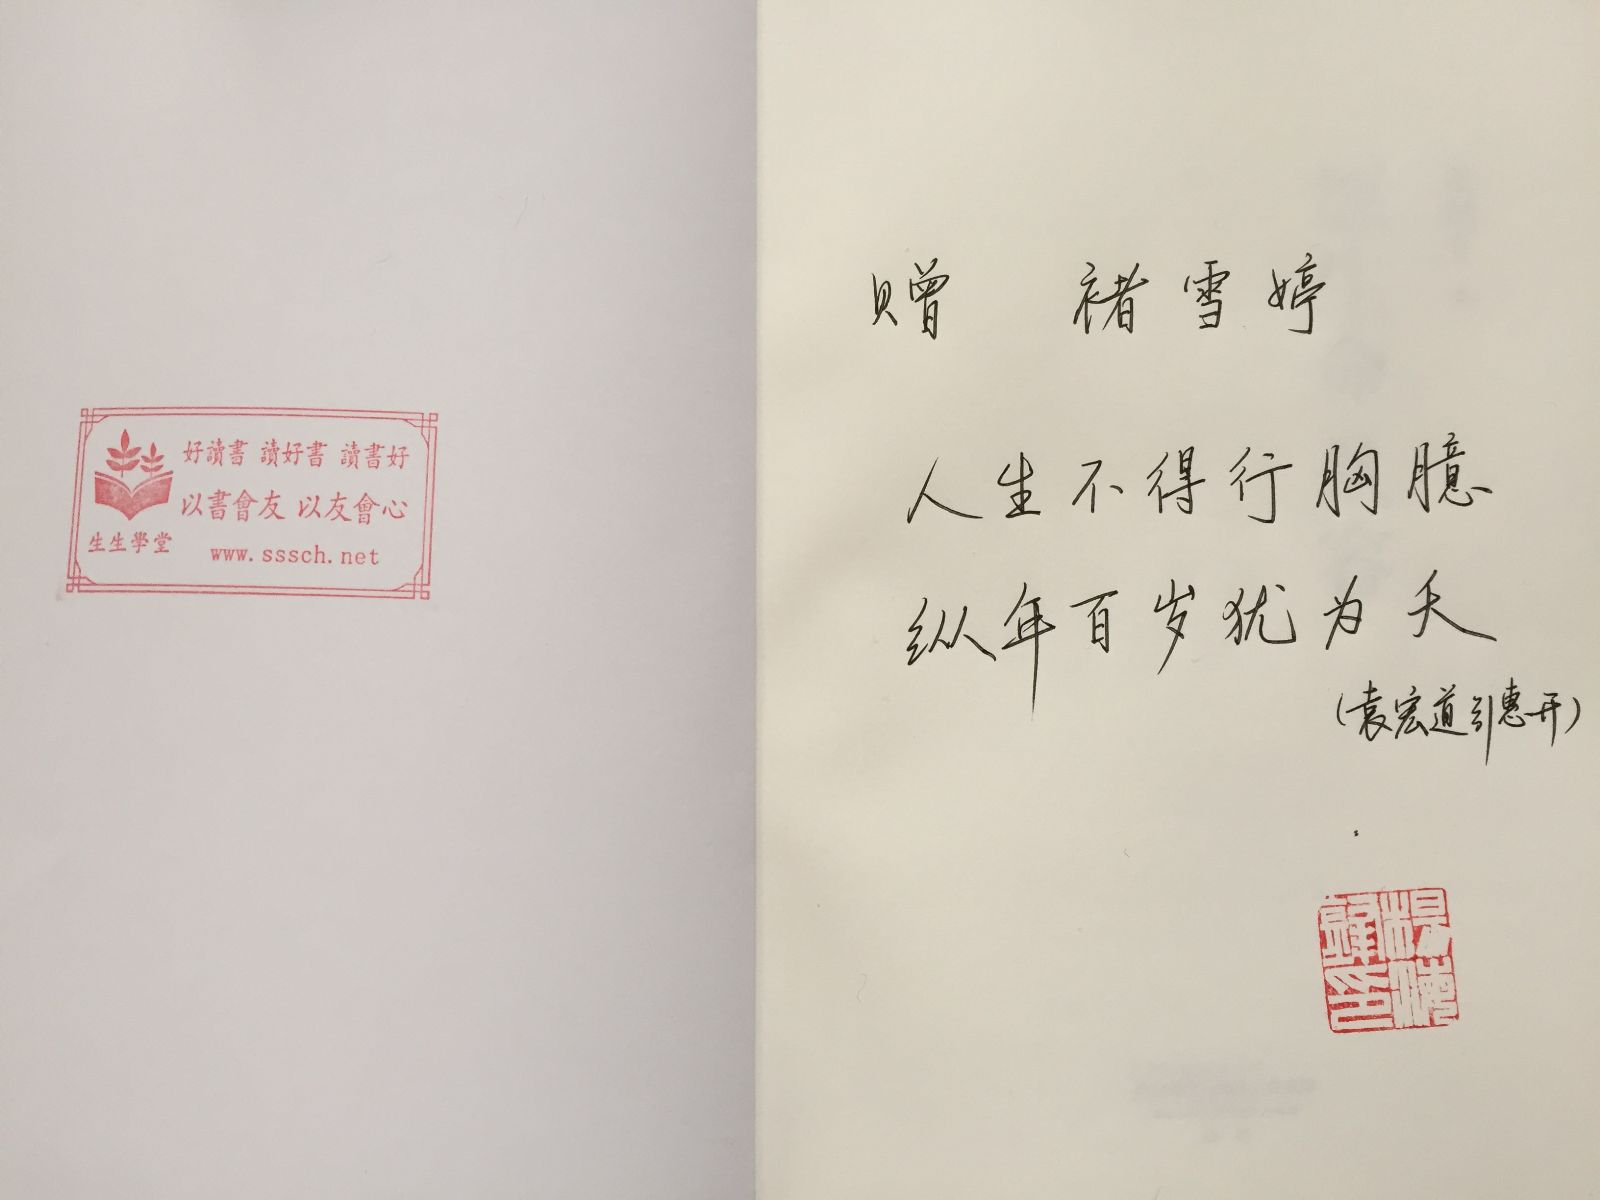 好讀書 讀好書 讀書好
以書會友 以友會心
生生學堂
www.sssch.net
赠 褚雪婷
人生不得行胸臆
纵年百岁犹为夭
(袁宏道引惠开)